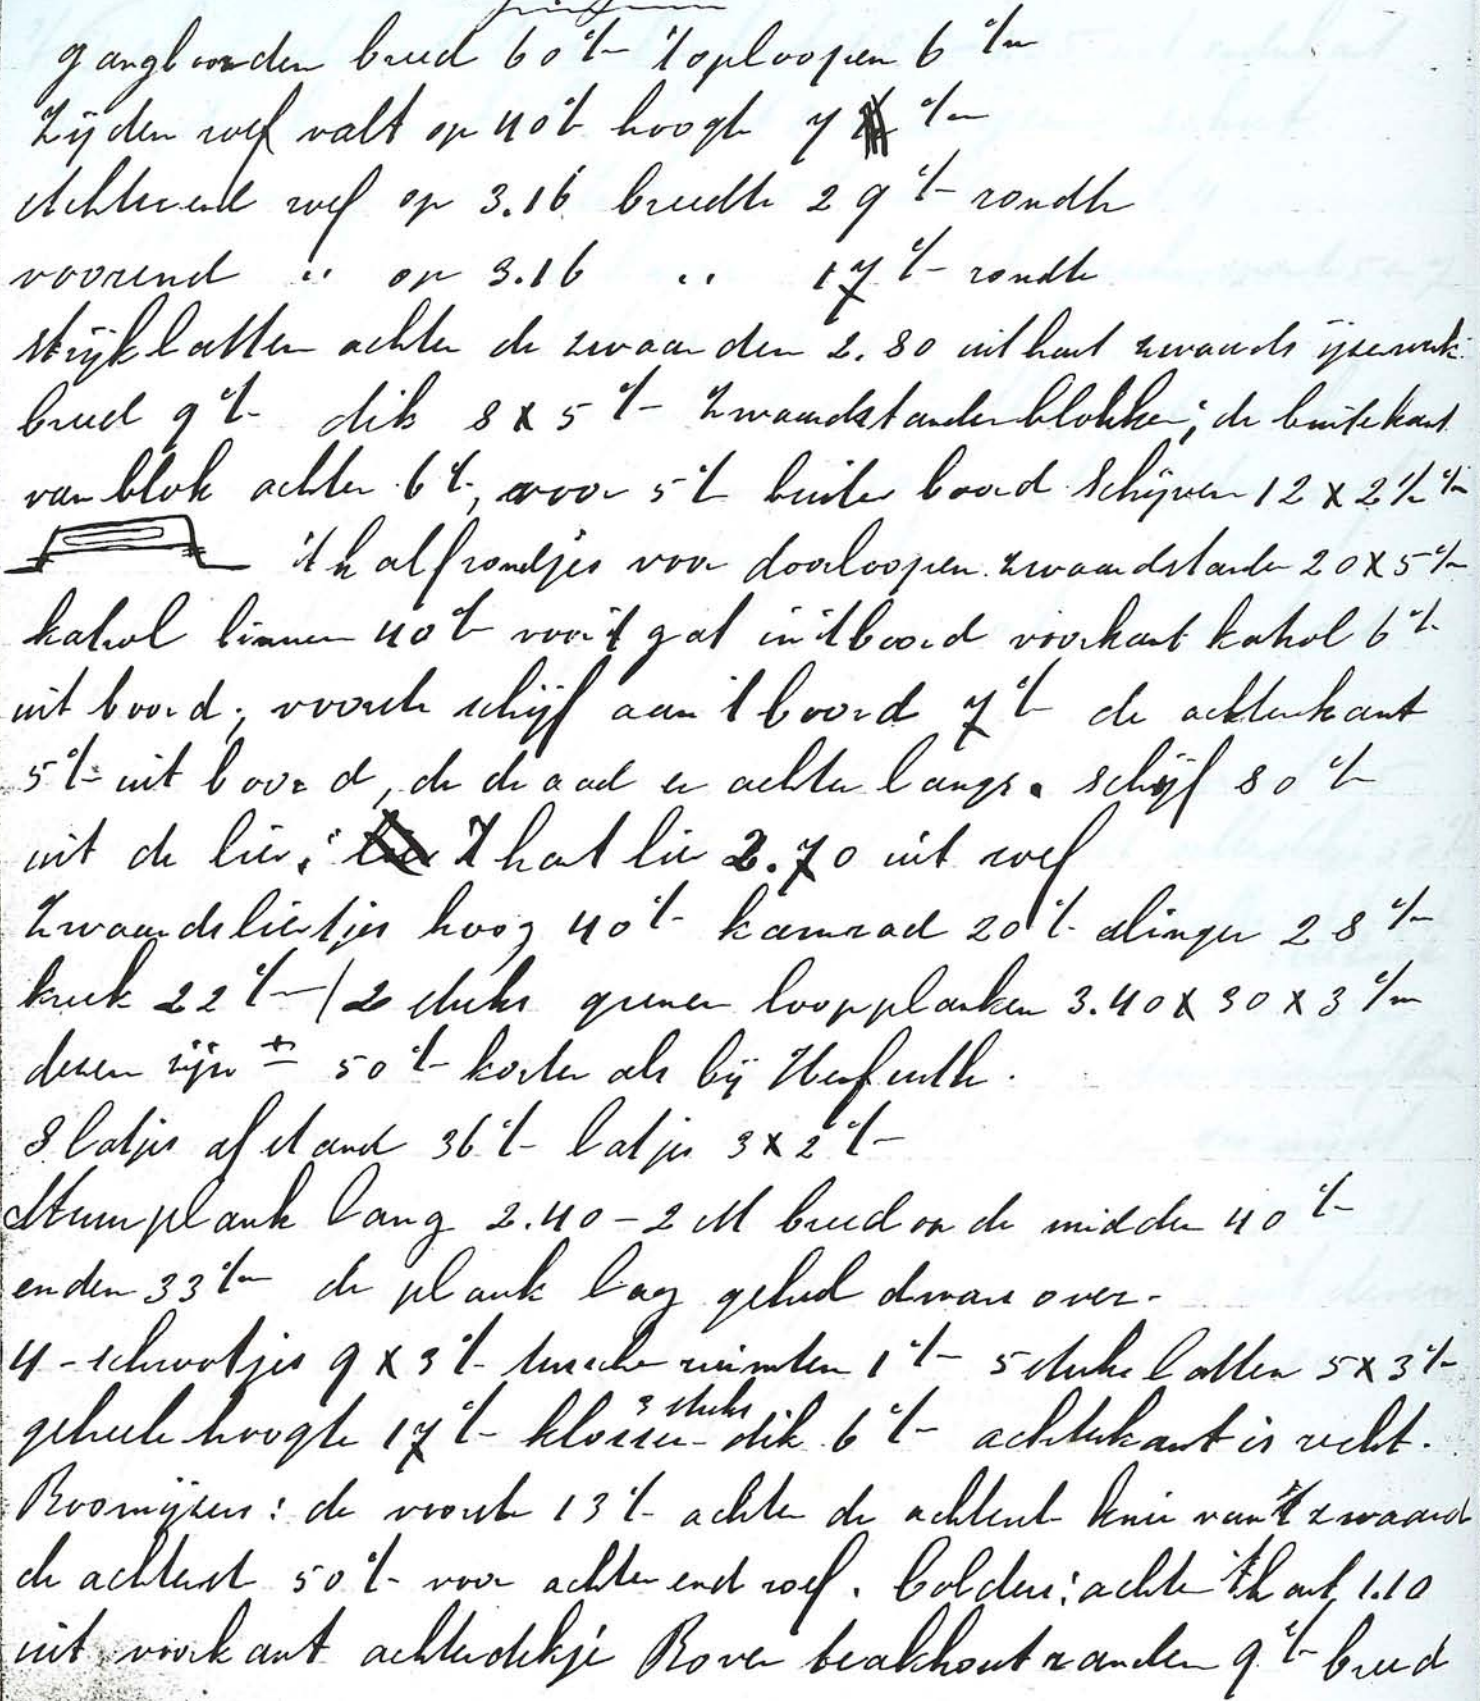 gangboorden breed 60 c/m 't oploopen 6 c/m
Zijden roef valt op 40 c/m hoogte 7 c/m
Achterend roef op 3.16 breedte 29 c/m rondte
voorend " op 3.16 " 17 c/m rondte
strijklatten achter de zwaarden 2.80 uit hart zwaards ijzerwerk
breed 9 c/m dik 8 x 5 c/m Zwaardstanderblokken; de buitekant
van blok achter 6 c/m, voor 5 c/m buiten boord Schijven 12 x 2½ c/m
't halfrondjes voor doorloopen zwaardstander 20 x 5 c/m
katrol binnen 40 c/m voor 't gat in 't boord voorkant katrol 6 c/m
uit boord; voorste schijf aan 't boord 7 c/m de achterkant
5 c/m uit boord, de draad er achter langs. schijf 80 c/m
uit de lier; 't hart lier 2.70 uit roef
Zwaardsliertjes hoog 40 c/m kamrad 20 c/m slinger 28 c/m
kruk 22 c/m / 2 stuks grenen loopplanken 3.40 x 30 x 3 c/m
dezen zijn ± 50 c/m korter als bij
8 latjes afstand 36 c/m latjes 3 x 2 c/m
Stuurplank lang 2.40 - 2 M breed op de midden 40 c/m
enden 33 c/m de plank lag geheel dwars over.
4 - schrootjes 9 x 3 c/m tussche ruimten 1 c/m 5 stuks latten 5 x 3 c/m
geheele hoogte 17 c/m klossen 3 stuks dik 6 c/m achterkant is recht.
Boomijzers: de voorste 13 c/m achter de achterste knie van 't zwaard
de achterste 50 c/m voor achterend roef. bolders: achter 't hart 1.10
uit voorkant achterdekje Boven teakhout randen 9 c/m breed